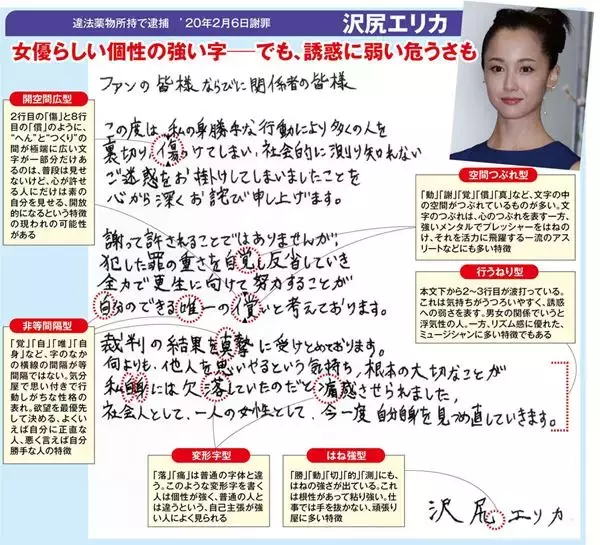 違法薬物所持で逮捕 '20年2月6日謝罪
沢尻エリカ
女優らしい個性の強い字──でも、誘惑に弱い危うさも
ファンの皆様ならびに関係者の皆様
この度は、私の身勝手な行動により多くの人を
裏切り、傷つけてしまい、社会的に測り知れない
ご迷惑をお掛けしてしまいましたことを
心から深くお詫び申し上げます。
謝って許されることではありませんが、
犯した罪の重さを自覚し反省していき
全力で更生に向けて努力することが
自分のできる唯一の償いと考えております。
裁判の結果を真摯に受けとめております。
何よりも、他人を思いやるという気持ち、根本の大切なことが
私自身には欠落していたのだと痛感させられました。
社会人として、一人の女性として、今一度自分自身を見つめ直していきます。
沢尻エリカ
開空間広型
2行目の「傷」と8行
目の「償」のように、
"へん"と"つくり"の
間が極端に広い文
字が一部分だけあ
るのは、普段は見
せないけど、心が許せ
る人にだけは素の
自分を見せる、開放
的になるという特徴
の現われの可能性
がある
非等間隔型
「覚」「自」「唯」「自
身」など、字のなか
の横線の間隔が等
間隔ではない。気分
屋で思い付きで行
動しがちな性格の
表れ。欲望を最優先
して決める、よくい
えば自分に正直な
人、悪く言えば自分
勝手な人の特徴
空間つぶれ型
「動」「謝」「覚」「償」「真」など、文字の中
の空間がつぶれているものが多い。文字
のつぶれは、心のつぶれを表す一方、
強いメンタルでプレッシャーをはねの
け、それを活力に飛躍する一流のアス
リートなどにも多い特徴
行うねり型
本文下から2〜3行目が波打っている。
これは気持ちがうつろいやすく、誘惑
への弱さを表す。男女の関係でいうと
浮気性の人。一方、リズム感に優れた、
ミュージシャンに多い特徴でもある
変形字型
「落」「痛」は普通の字体と違
う。このような変形字を書く
人は個性が強く、普通の人と
は違うという、自己主張が強
い人によく見られる
はね強型
「勝」「動」「切」「的」「測」にも、
はねの強さが出ている。これ
は根性があって粘り強い。仕
事では手を抜かない、頑張り
屋に多い特徴